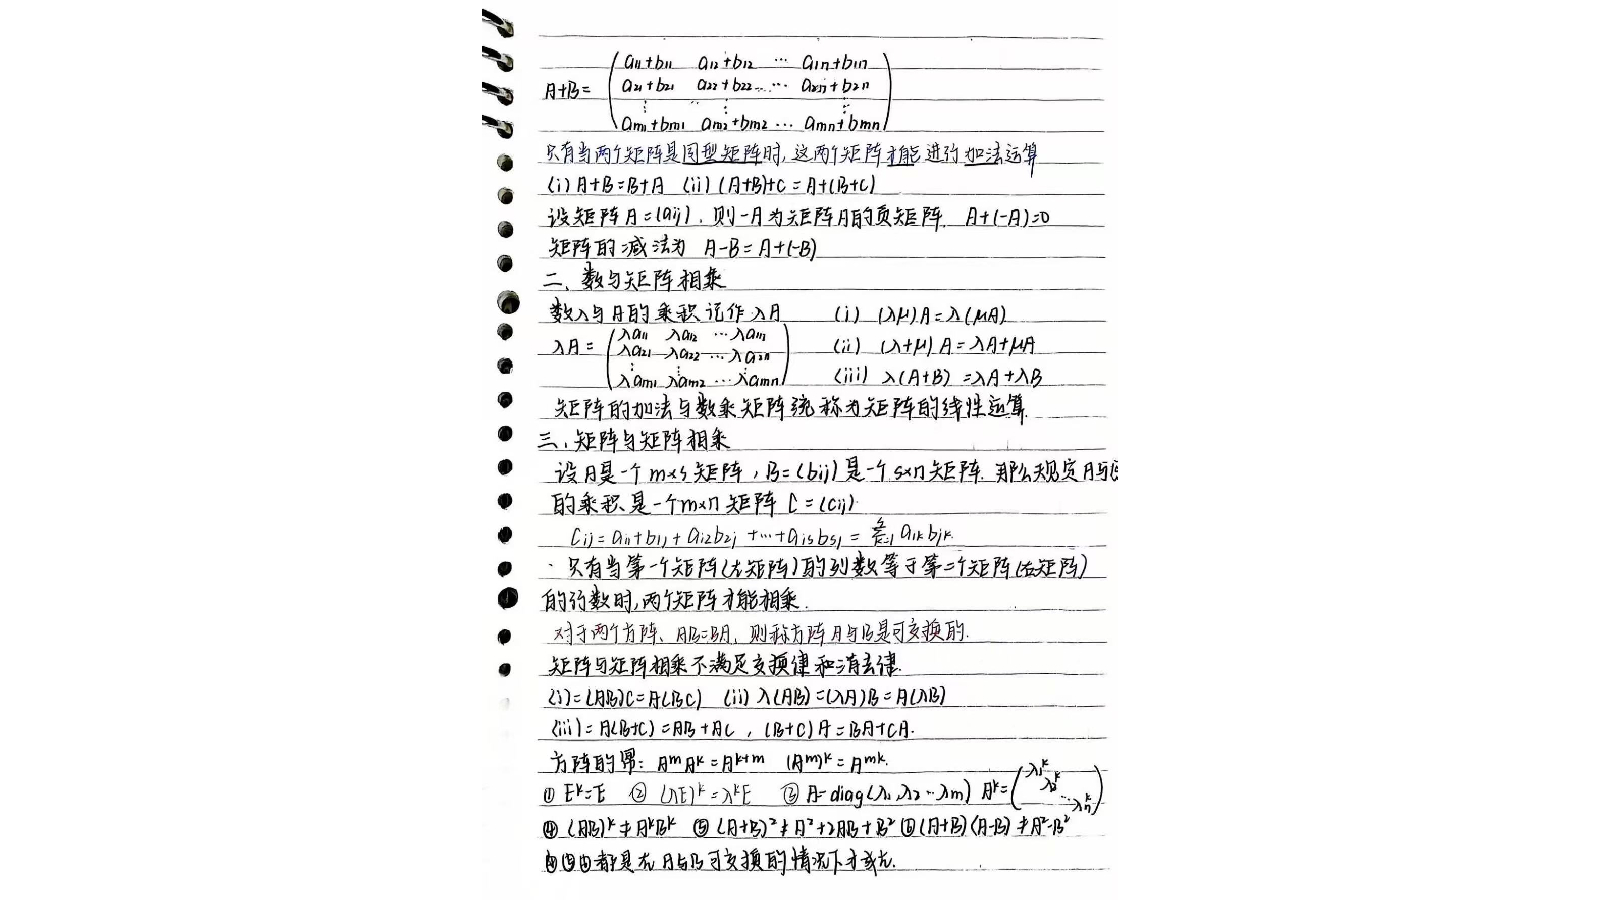 A+B= ( a11+b11 a12+b12 ... a1n+b1n
a21+b21 a22+b22 ... a2n+b2n
⋮ ⋮ ⋮
am1+bm1 am2+bm2 ... amn+bmn )
只有当两个矩阵是同型矩阵时,这两个矩阵才能进行加法运算
(i) A+B=B+A (ii) (A+B)+C=A+(B+C)
设矩阵A=(aij),则-A为矩阵A的负矩阵. A+(-A)=0
矩阵的减法为 A-B=A+(-B)
二、数与矩阵相乘
数λ与A的乘积记作λA (i) (λμ)A=λ(μA)
λA= ( λa11 λa12 ... λa1n
λa21 λa22 ... λa2n (ii) (λ+μ)A=λA+μA
⋮ ⋮ ⋮
λam1 λam2 ... λamn ) (iii) λ(A+B)=λA+λB
矩阵的加法与数乘矩阵统称为矩阵的线性运算.
三、矩阵与矩阵相乘
设A是一个m×s矩阵,B=(bij)是一个s×n矩阵.那么规定A与B
的乘积是一个m×n矩阵 C=(cij).
Cij=ai1+b1j+ai2b2j+...+aisbsj= Σ k=1 aikbjk.
·只有当第一个矩阵(左矩阵)的列数等于第二个矩阵(右矩阵)
的行数时,两个矩阵才能相乘.
对于两个方阵、AB=BA,则称方阵A与B是可交换的.
矩阵与矩阵相乘不满足交换律和消去律.
(i)=(AB)C=A(BC) (ii) λ(AB)=(λA)B=A(λB)
(iii)=A(B+C)=AB+AC,(B+C)A=BA+CA.
方阵的幂: A^m A^k=A^k+m (A^m)^k=A^mk.
① E^k=E ② (λE)^k=λ^kE ③ A=diag(λ1,λ2...λm) A^k= ( λ1^k λ2^k ... λn^k )
④ (AB)^k≠A^kB^k ⑤ (A+B)²≠A²+2AB+B² ⑥ (A+B)(A-B)≠A²-B²
④⑤⑥都是在A与B可交换的情况下才成立.